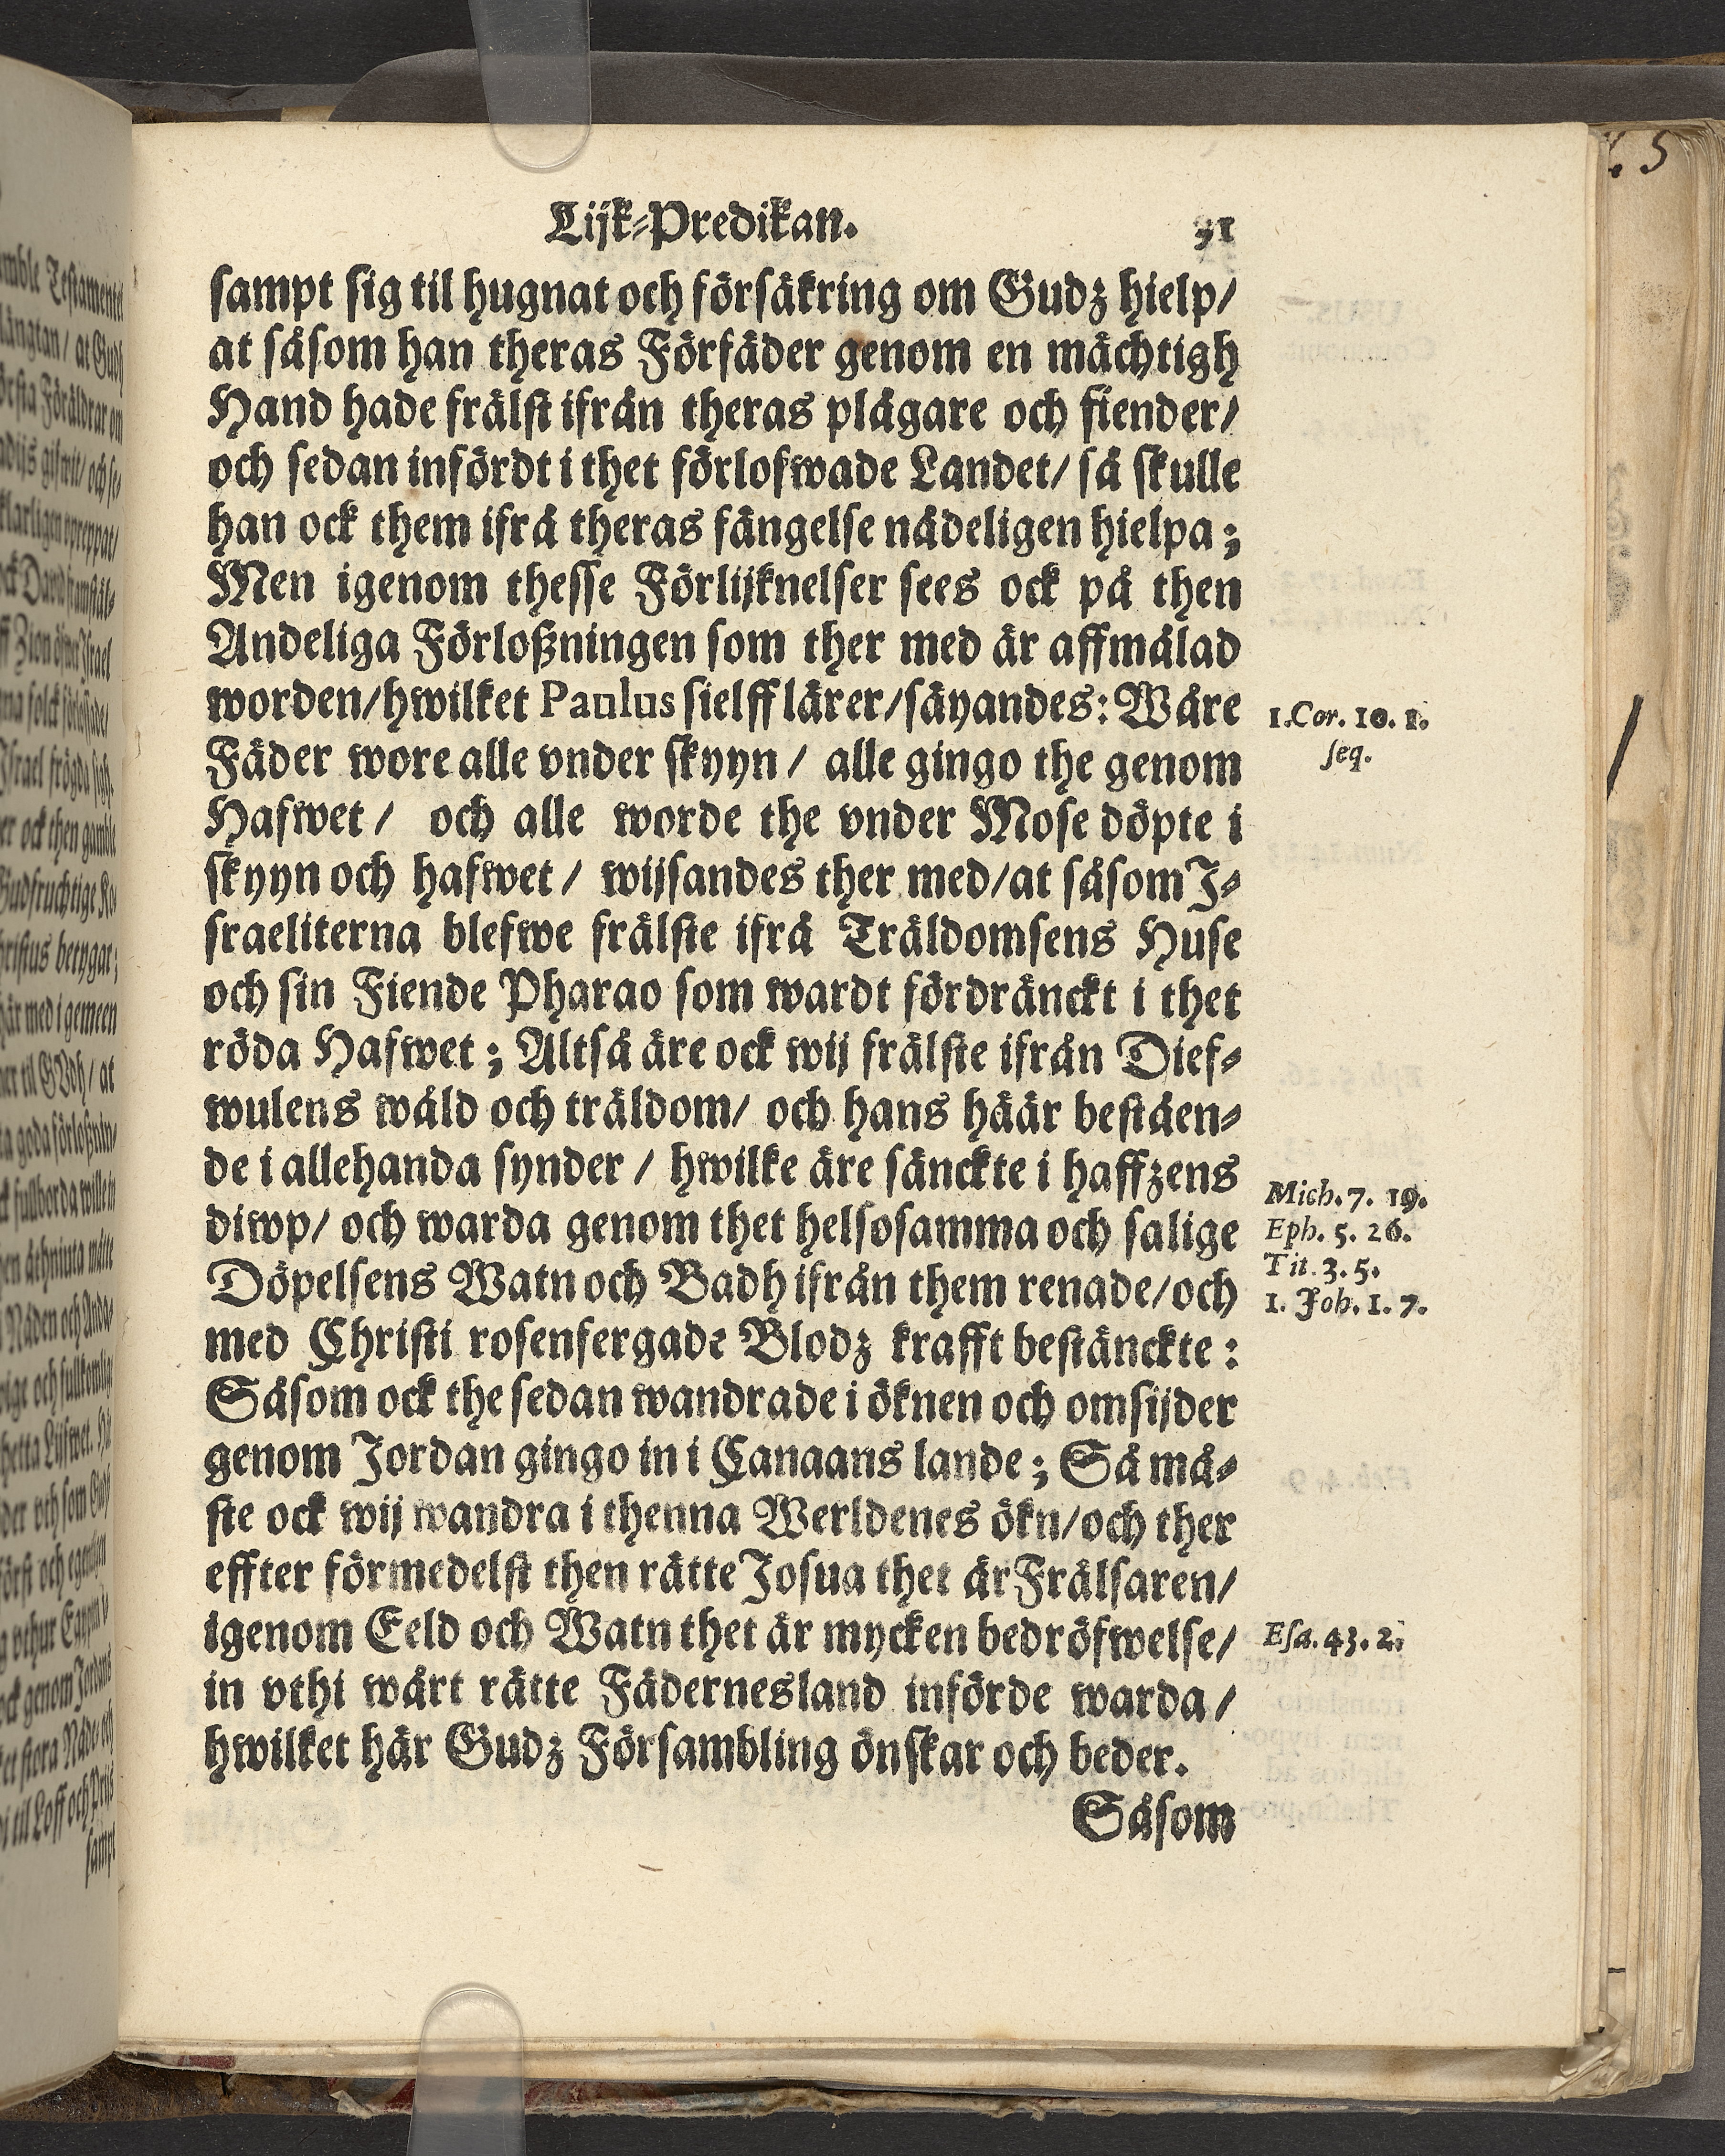 Lijk-Predikan. 31
sampt sig til hugnat och försäkring om Gudz hielp/
at såsom han theras Förfäder genom en mächtigh
Hand hade frälst ifrån theras plågare och fiender/
och sedan infördt i thet förlofwade Landet/ så skulle
han ock them ifrå theras fängelse nådeligen hielpa;
Men igenom thesse Förlijknelser sees ock på then
Andeliga Förloßningen som ther med är affmålad
worden/hwilket Paulus sielff lärer/säyandes: Wåre
1. Cor. 10. 1.
seq.
Fäder wore alle vnder skyyn / alle gingo the genom
Hafwet / och alle worde the vnder Mose döpte i
skyyn och hafwet / wijsandes ther med/at såsom I-
sraeliterna blefwe frälste ifrå Träldomsens Huse
och sin Fiende Pharao som wardt fördränckt i thet
röda Hafwet; Altså äre ock wij frälste ifrån Dief-
wulens wåld och träldom/ och hans häär beståen-
de i allehanda synder / hwilke äre sänckte i haffzens
Mich. 7. 19.
diwp/ och warda genom thet helsosamma och salige
Eph. 5. 26.
Tit. 3. 5.
Döpelsens Watn och Badh ifrån them renade/och
1. Joh. 1. 7.
med Christi rosenfergade Blodz krafft bestänckte:
Såsom ock the sedan wandrade i öknen och omsijder
genom Jordan gingo in i Canaans lande; Så må-
ste ock wij wandra i thenna Werldenes ökn/och ther
effter förmedelst then rätte Josua thet är Frälsaren/
igenom Eeld och Watn thet är mycken bedröfwelse/
Esa. 43. 2.
in vthi wårt rätte Fädernesland införde warda/
hwilket här Gudz Försambling önskar och beder.
Såsom